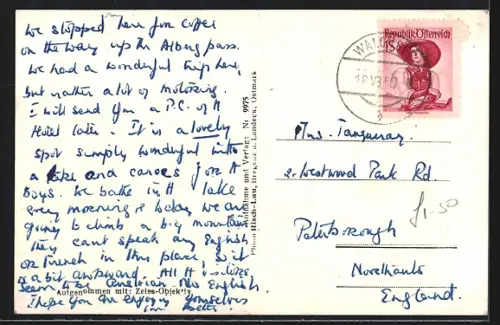 We stopped here for coffee
on the way up the Alberg pass.
We had a wonderful trip here,
but rather a lot of motoring.
I will send you a P.C. of the
Hotel later. It is a lovely
spot simply wonderful with
a lake and canoes for the
boys. We bathe in the lake
every morning & today we are
going to climb a big mountain
They cant speak any English
or French in this place, so it
is a bit awkward. All the visitors
seem to be no English
I hope you are enjoying yourselves
Aufgenommen mit: Zeiss-Objektiv
Aufnahme und Verlag: Nr. 9975
Photo Risch-Lau, Bregenz a. Landeck, Ostmark
Republik Österreich
1S
WALD
Mrs.
2. Westwood Park Rd.
Peterborough
Northants
England.
£1-50